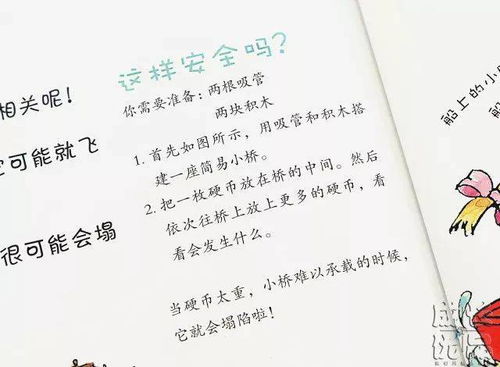 相关呢！
可能就飞
很可能会塌
这样安全吗？
你需要准备：两根吸管
两块积木
1. 首先如图所示，用吸管和积木搭
建一座简易小桥。
2. 把一枚硬币放在桥的中间。然后
依次往桥上放上更多的硬币，看
看会发生什么。
当硬币太重，小桥难以承载的时候，
它就会塌陷啦！
船上的小